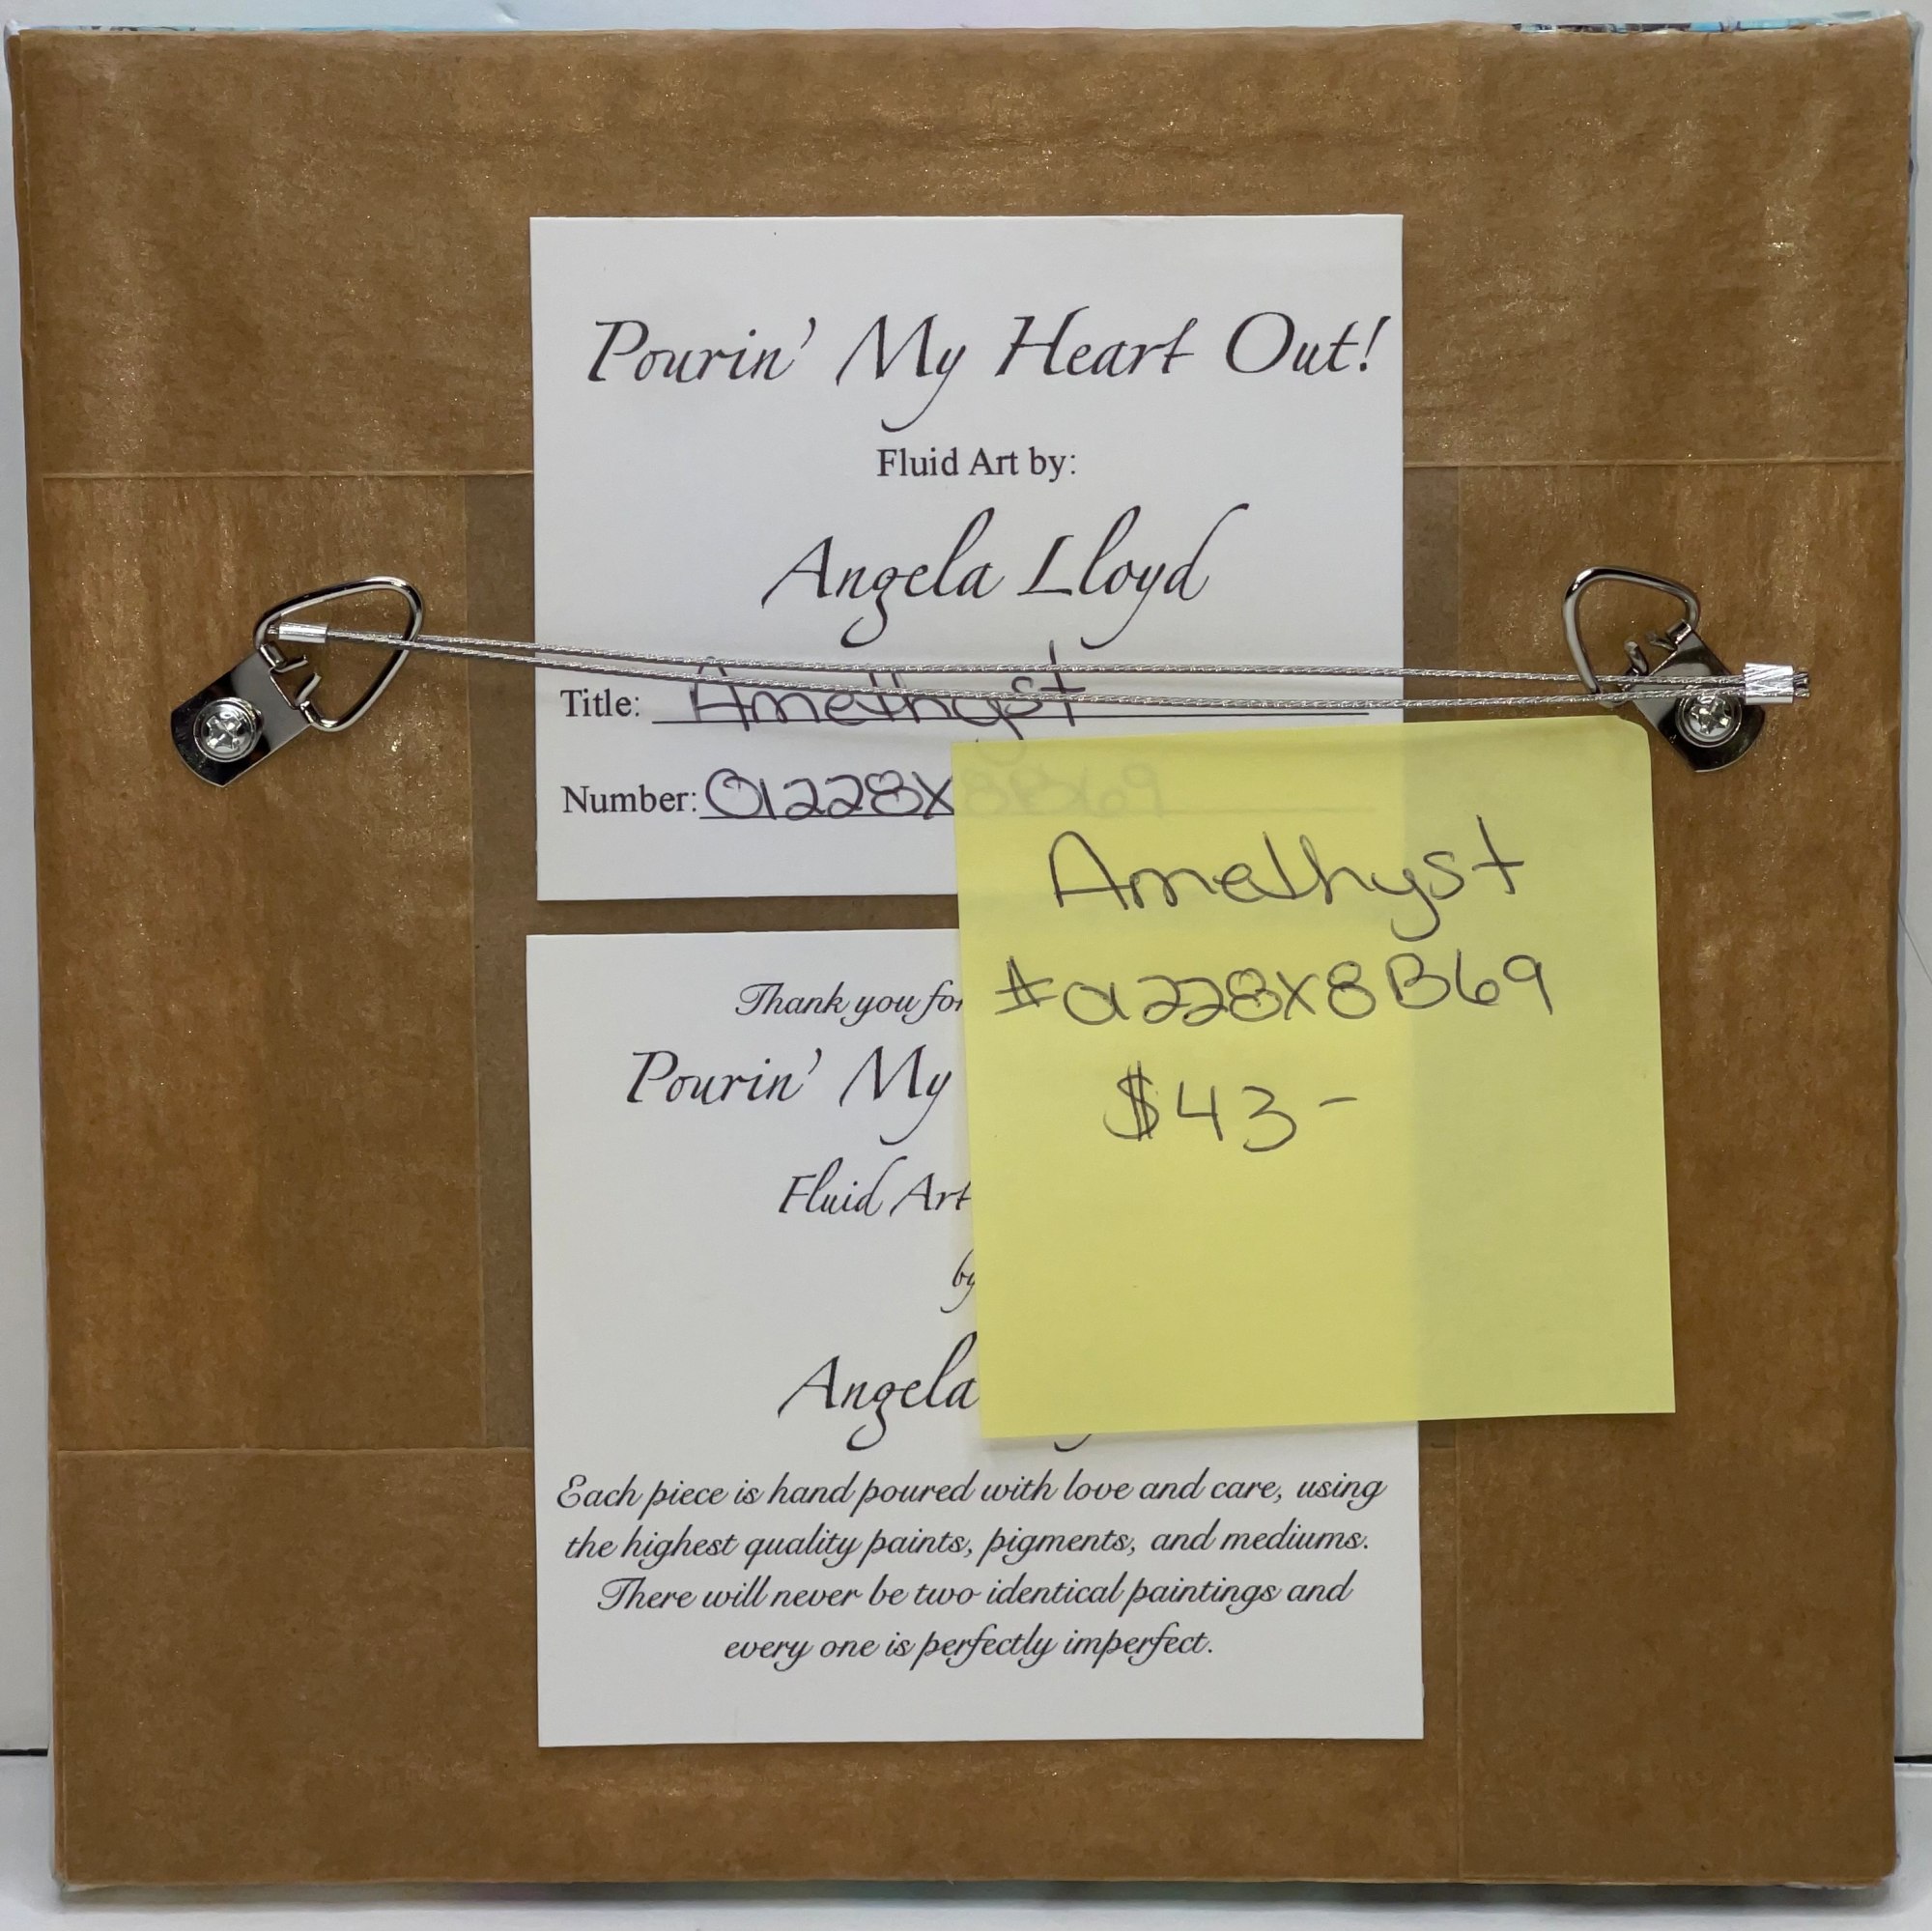 Pourin' My Heart Out!
Fluid Art by:
Angela Lloyd
Title: Amethyst
Number: 01228X8B69
Amethyst
#01228X8B69
$43-
Thank you for
Pourin' My
Fluid Art
by
Angela
Each piece is hand poured with love and care, using
the highest quality paints, pigments, and mediums.
There will never be two identical paintings and
every one is perfectly imperfect.